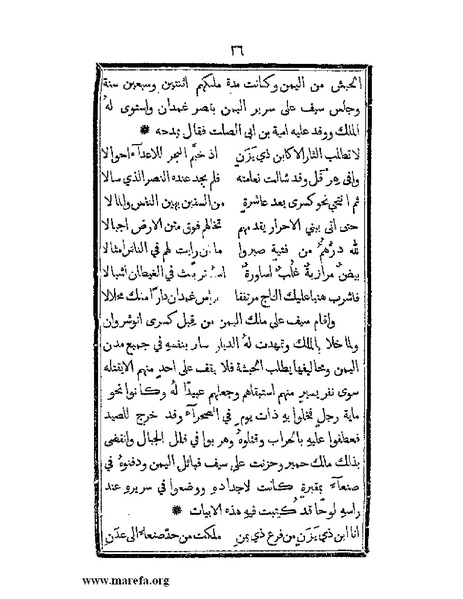 ٢٦
الحبش من اليمن وكانت مدة ملكهم اثنتين وسبعين سنة
وجلس سيف على سرير اليمن بقصر غمدان واستوى لهُ
الملك ووفد عليه امية بن ابي الصلت فقال يمدحه *
لا تطلب الثار الا كابن ذي يَزَن اذ خيَّم البحر للاعدآء احوالا
وافى هِرَقل وقد شالت نعامته فلم يجد عنده النصر الذي سالا
ثم انتحى نحو كسرى بعد عاشرةٍ من السنين يهين النفس والمالا
حتى اتى ببني الاحرار يقدمهم تخالهم فوق متن الارض اجبالا
لله درُّهُم من فتيةٍ صبروا ما ان رايت لهم في الناس امثالا
بيضٌ مرازبةٌ غُلبٌ اساورةٌ اسدٌ تربّت في الغيطان اشبالا
فاشرب هنيا عليك التاج مرتفقا براس غمدان دارًا منك محلالا
واقام سيف على ملك اليمن من قِبل كسرى انوشروان
ولما خلا بالملك وتمهدت لهُ الديار سار بنفسهِ في جميع مدن
اليمن ومخاليفها يطلب الحبشة فلا يقف على احدٍ منهم الا يقتله
سوى نفرٍ يسيرٍ منهم استبقاهم وجعلهم عبيدًا لهُ وكانوا نحو
ماية رجلٍ فخلوا بهِ ذات يوم في الصحرآء وقد خرج للصيد
فعطفوا عليهِ بالحراب وقتلوهُ وهربوا في قلل الجبال وانقضى
بذلك ملك حمير وحزنت على سيف قبائل اليمن ودفنوهُ في
صنعآء بمقبرةٍ كانت لاجدادهِ ووضعوا في سريرهِ عند
راسهِ لوحًا قد كُتِبت فيهِ هذه الابيات *
انا ابن ذي يَزَنٍ من فرع ذي يمنِ ملكت من حدّ صنعاء الى عدَنِ
www.marefa.org